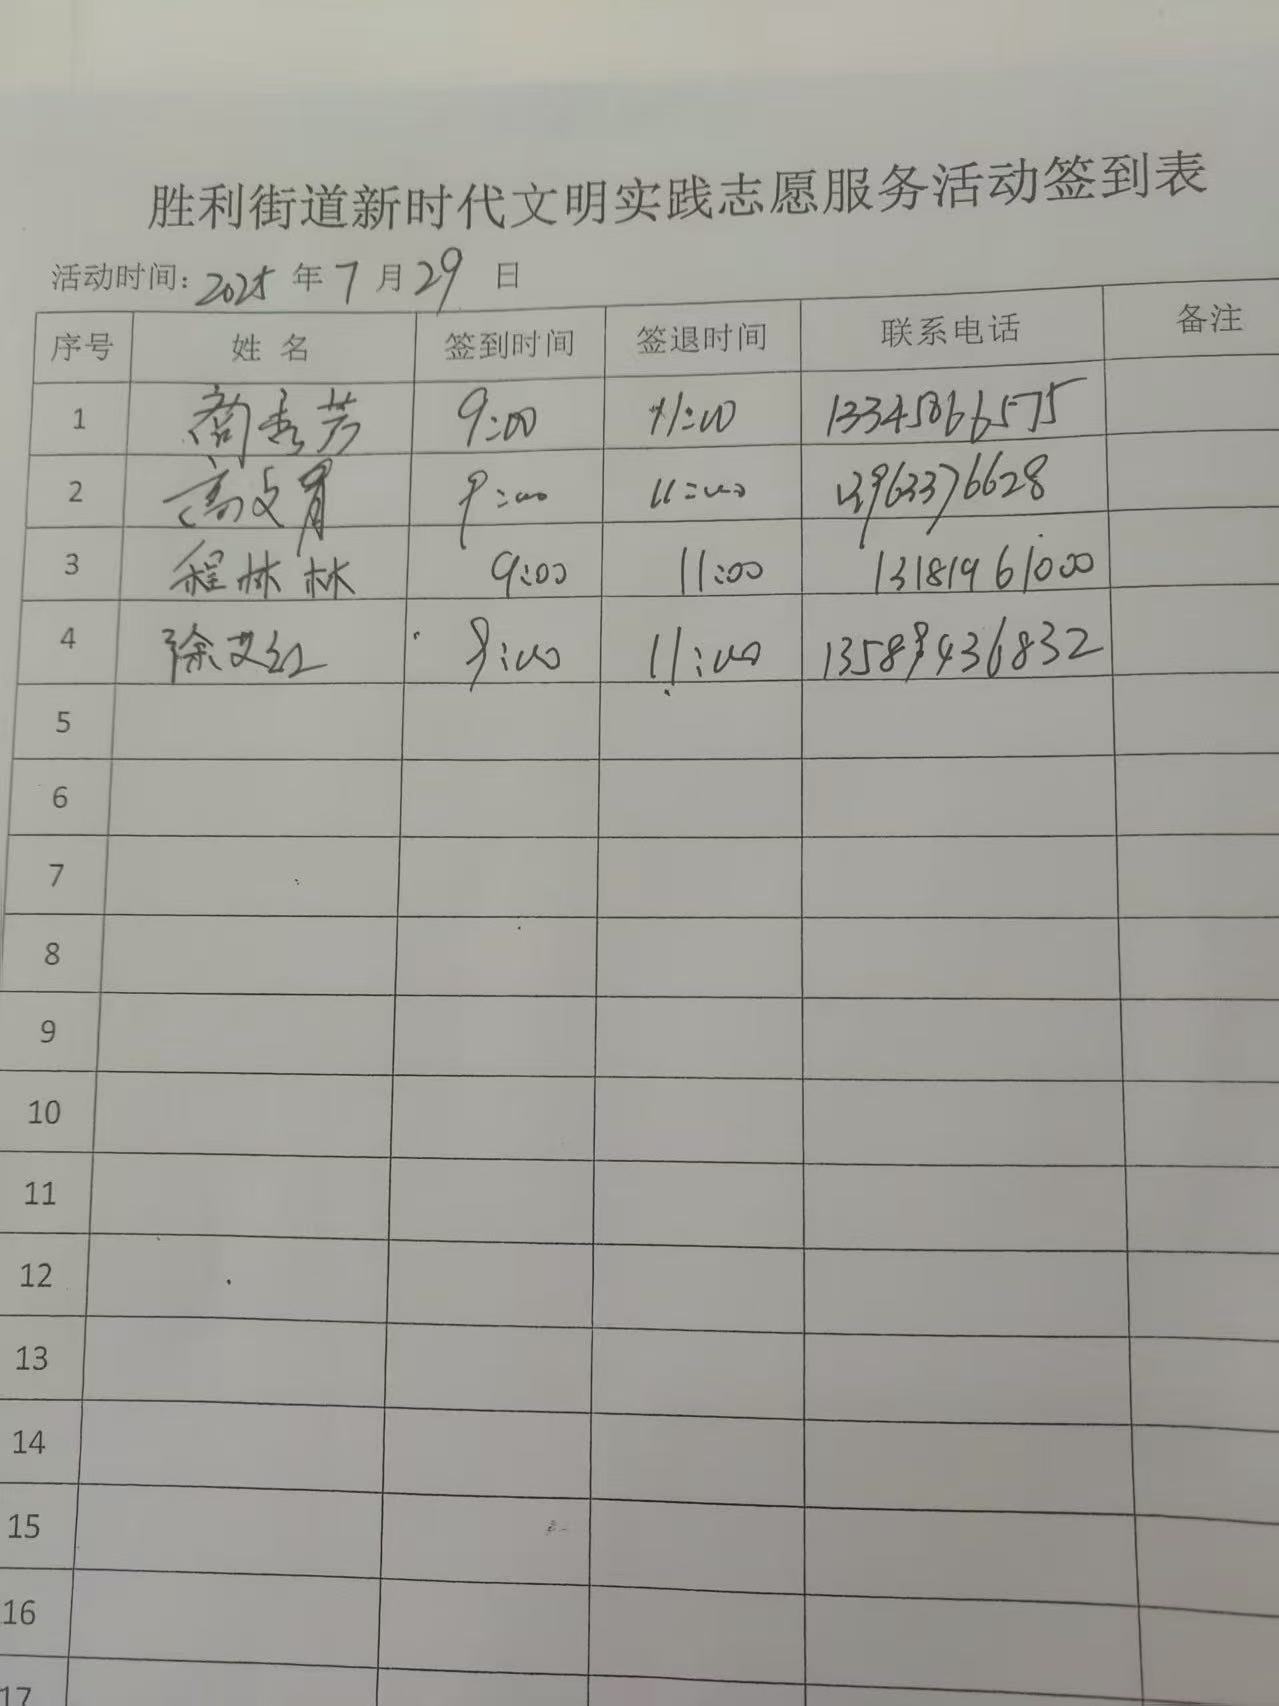 胜利街道新时代文明实践志愿服务活动签到表
活动时间：2025 年 7 月 29 日
序号 姓 名 签到时间 签退时间 联系电话 备注
1 商秀芳 9:00 11:00 13345066575
2 高文育 9:00 11:00 13963376628
3 程林林 9:00 11:00 13181961000
4 徐艾红 9:00 11:00 13589436832
5
6
7
8
9
10
11
12
13
14
15
16
17